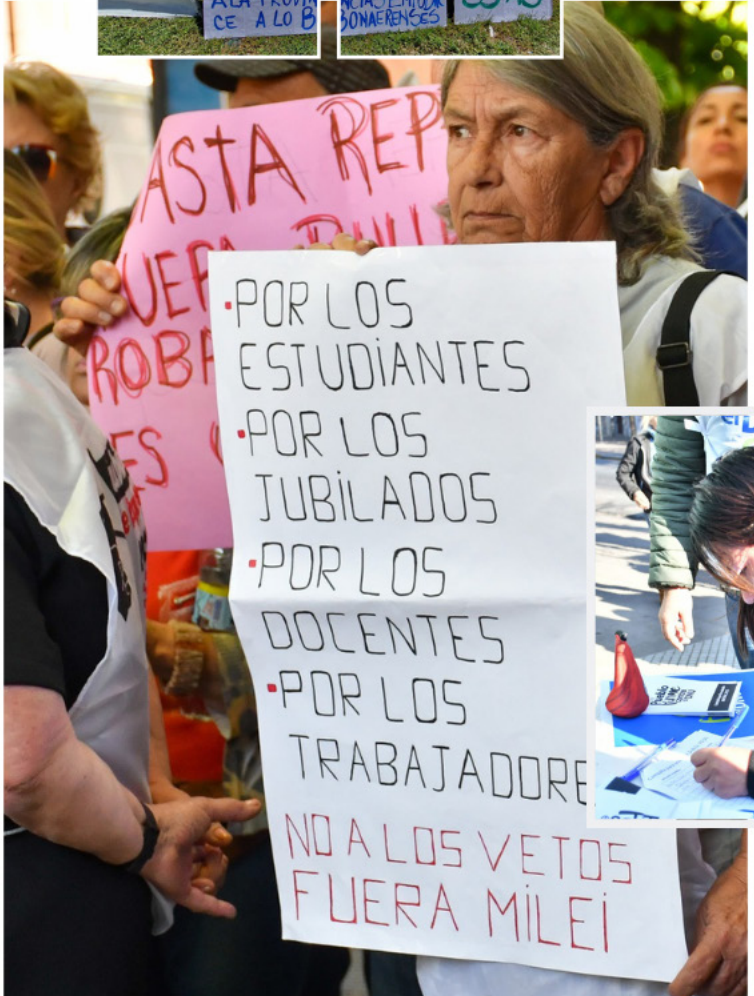 A LA PROVINCIAS EMI
CE A LO B BONAERENSES
ASTA REP
UERA BULL
ROBA
ES
·POR LOS
ESTUDIANTES
·POR LOS
JUBILADOS
·POR LOS
DOCENTES
·POR LOS
TRABAJADORE
NO A LOS VETOS
FUERA MILEI